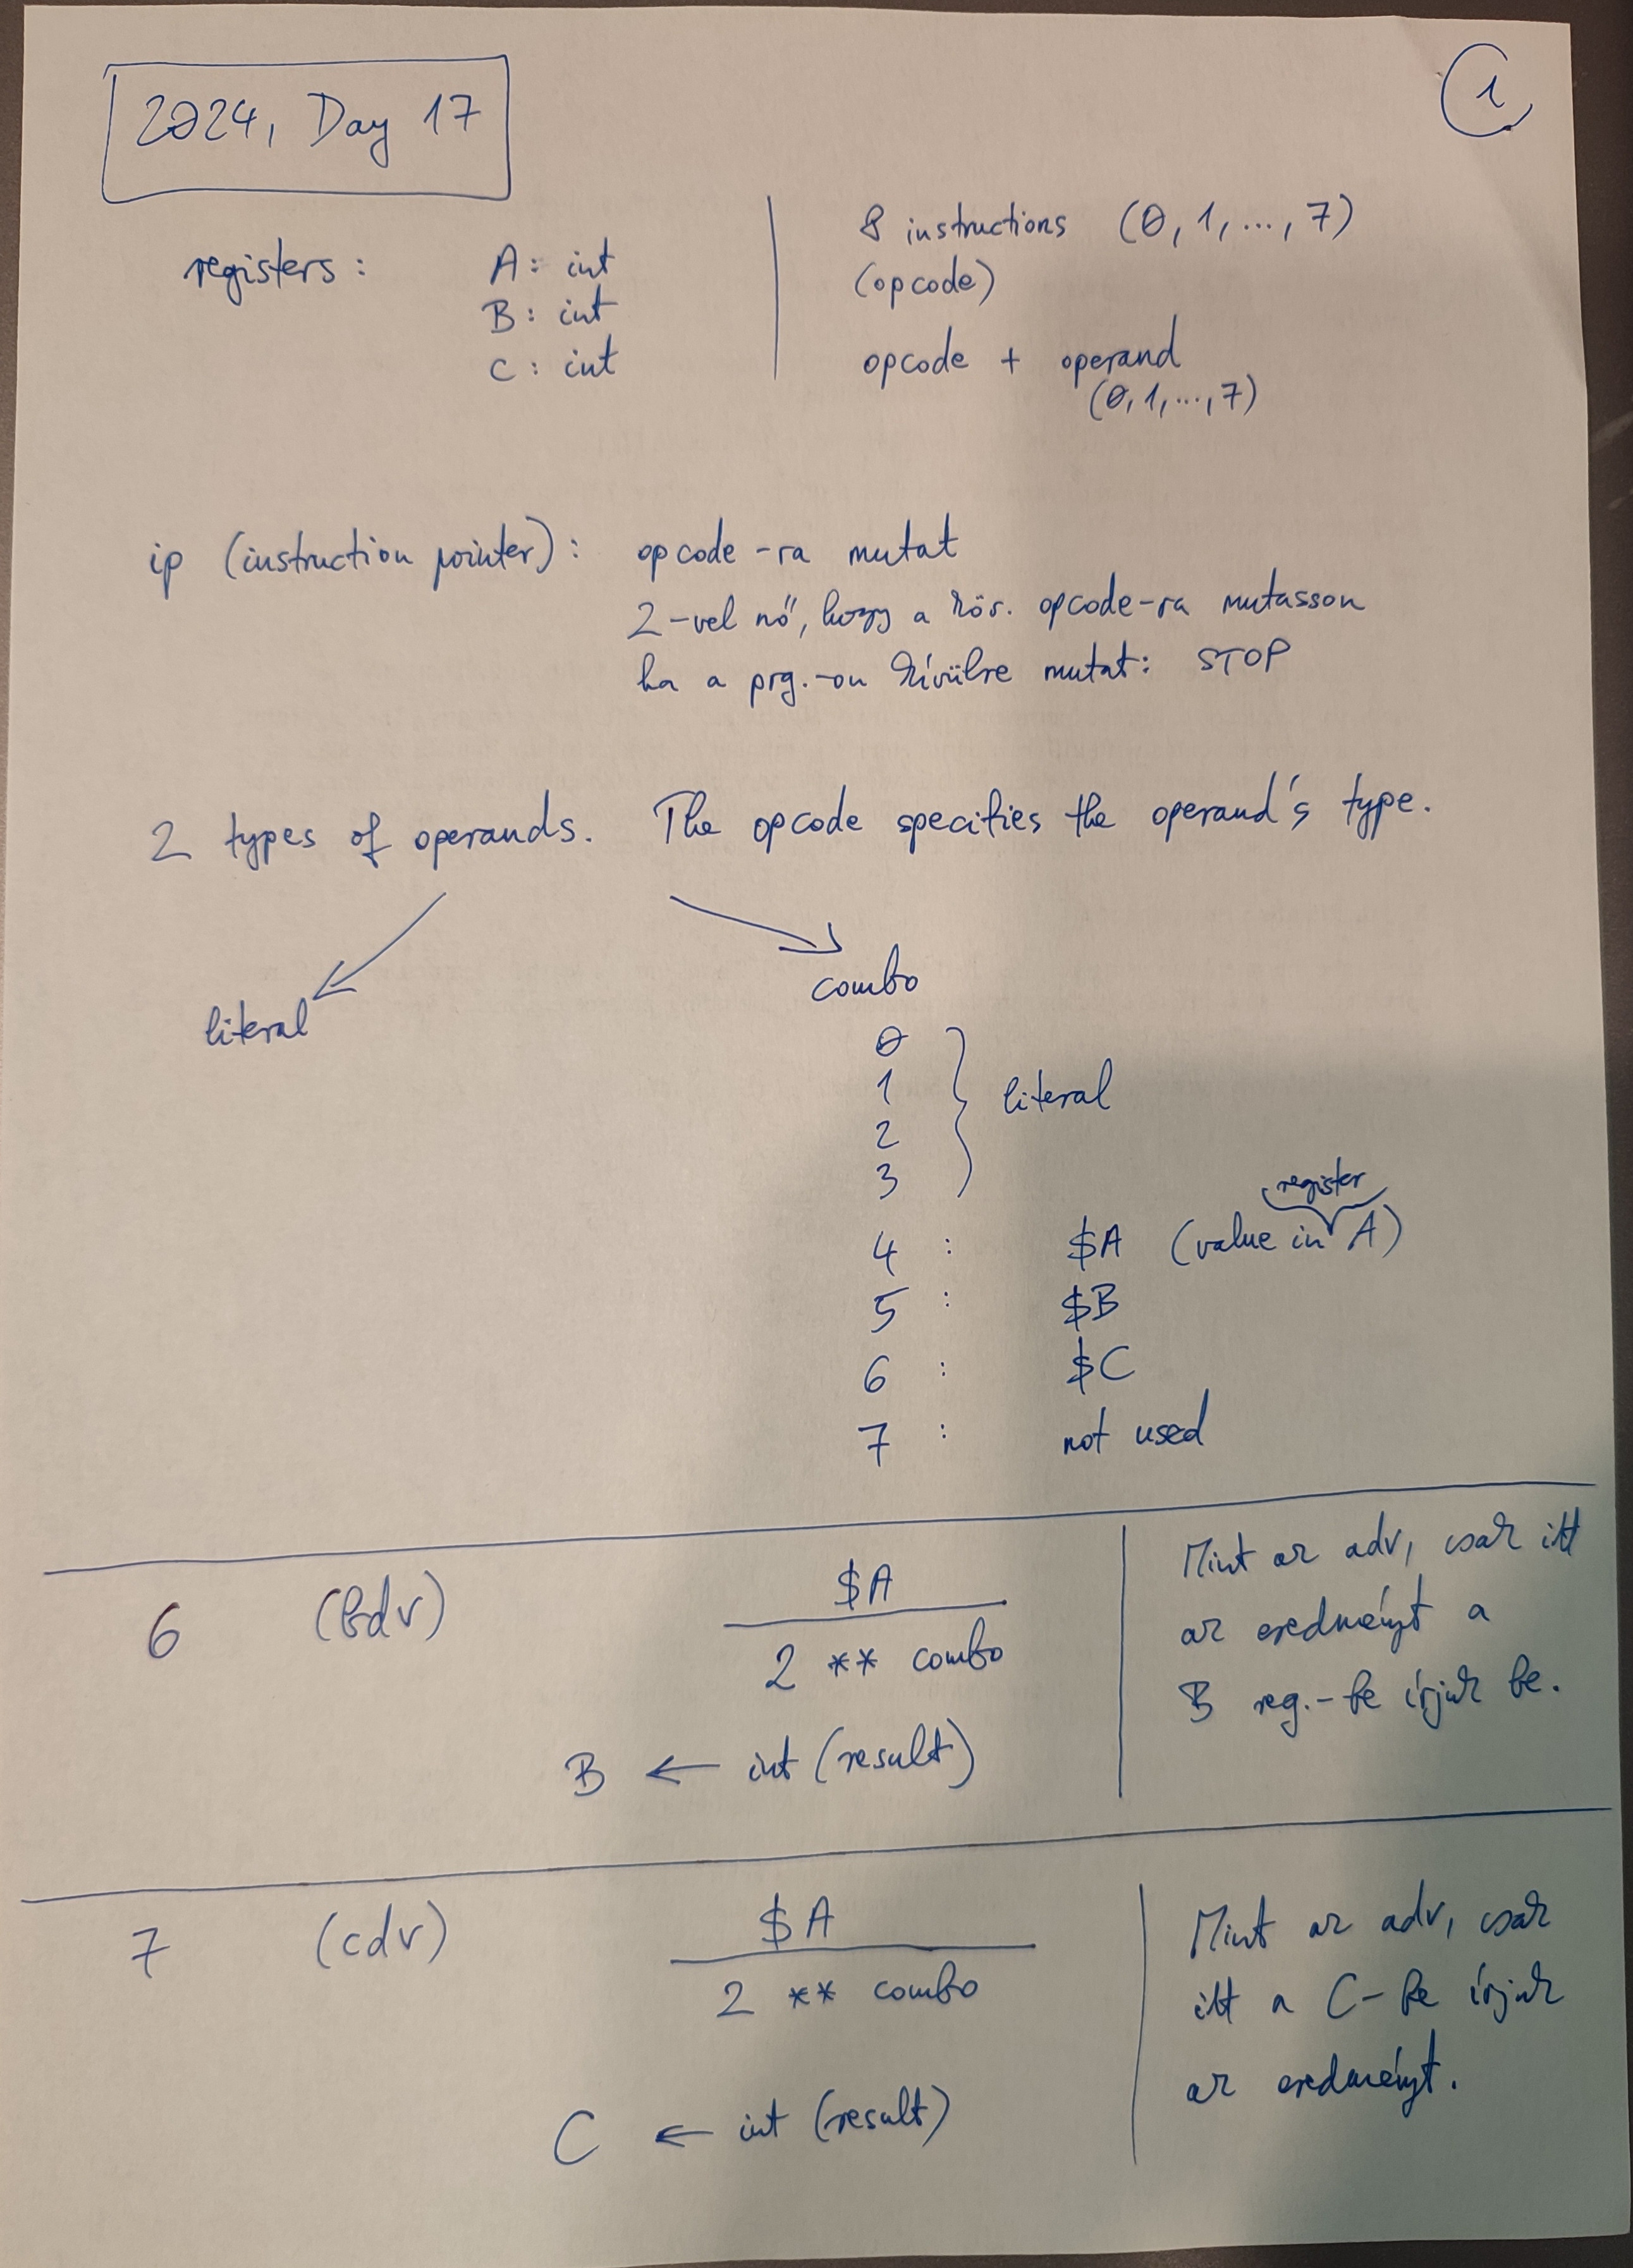 2024, Day 17
1
registers: A: int
B: int
C: int
8 instructions (0, 1, ..., 7)
(opcode)
opcode + operand
(0, 1, ..., 7)
ip (instruction pointer): opcode-ra mutat
2-vel nő, hogy a köv. opcode-ra mutasson
ha a prg.-on kívülre mutat: STOP
2 types of operands. The opcode specifies the operand's type.
literal
combo
0
1
2
3
literal
register
4 : $A (value in A)
5 : $B
6 : $C
7 : not used
6 (bdv)
$A
2 ** combo
B ← int (result)
Mint az adv, csak itt
az eredményt a
B reg.-be írjuk be.
7 (cdv)
$A
2 ** combo
C ← int (result)
Mint az adv, csak
itt a C-be írjuk
az eredményt.